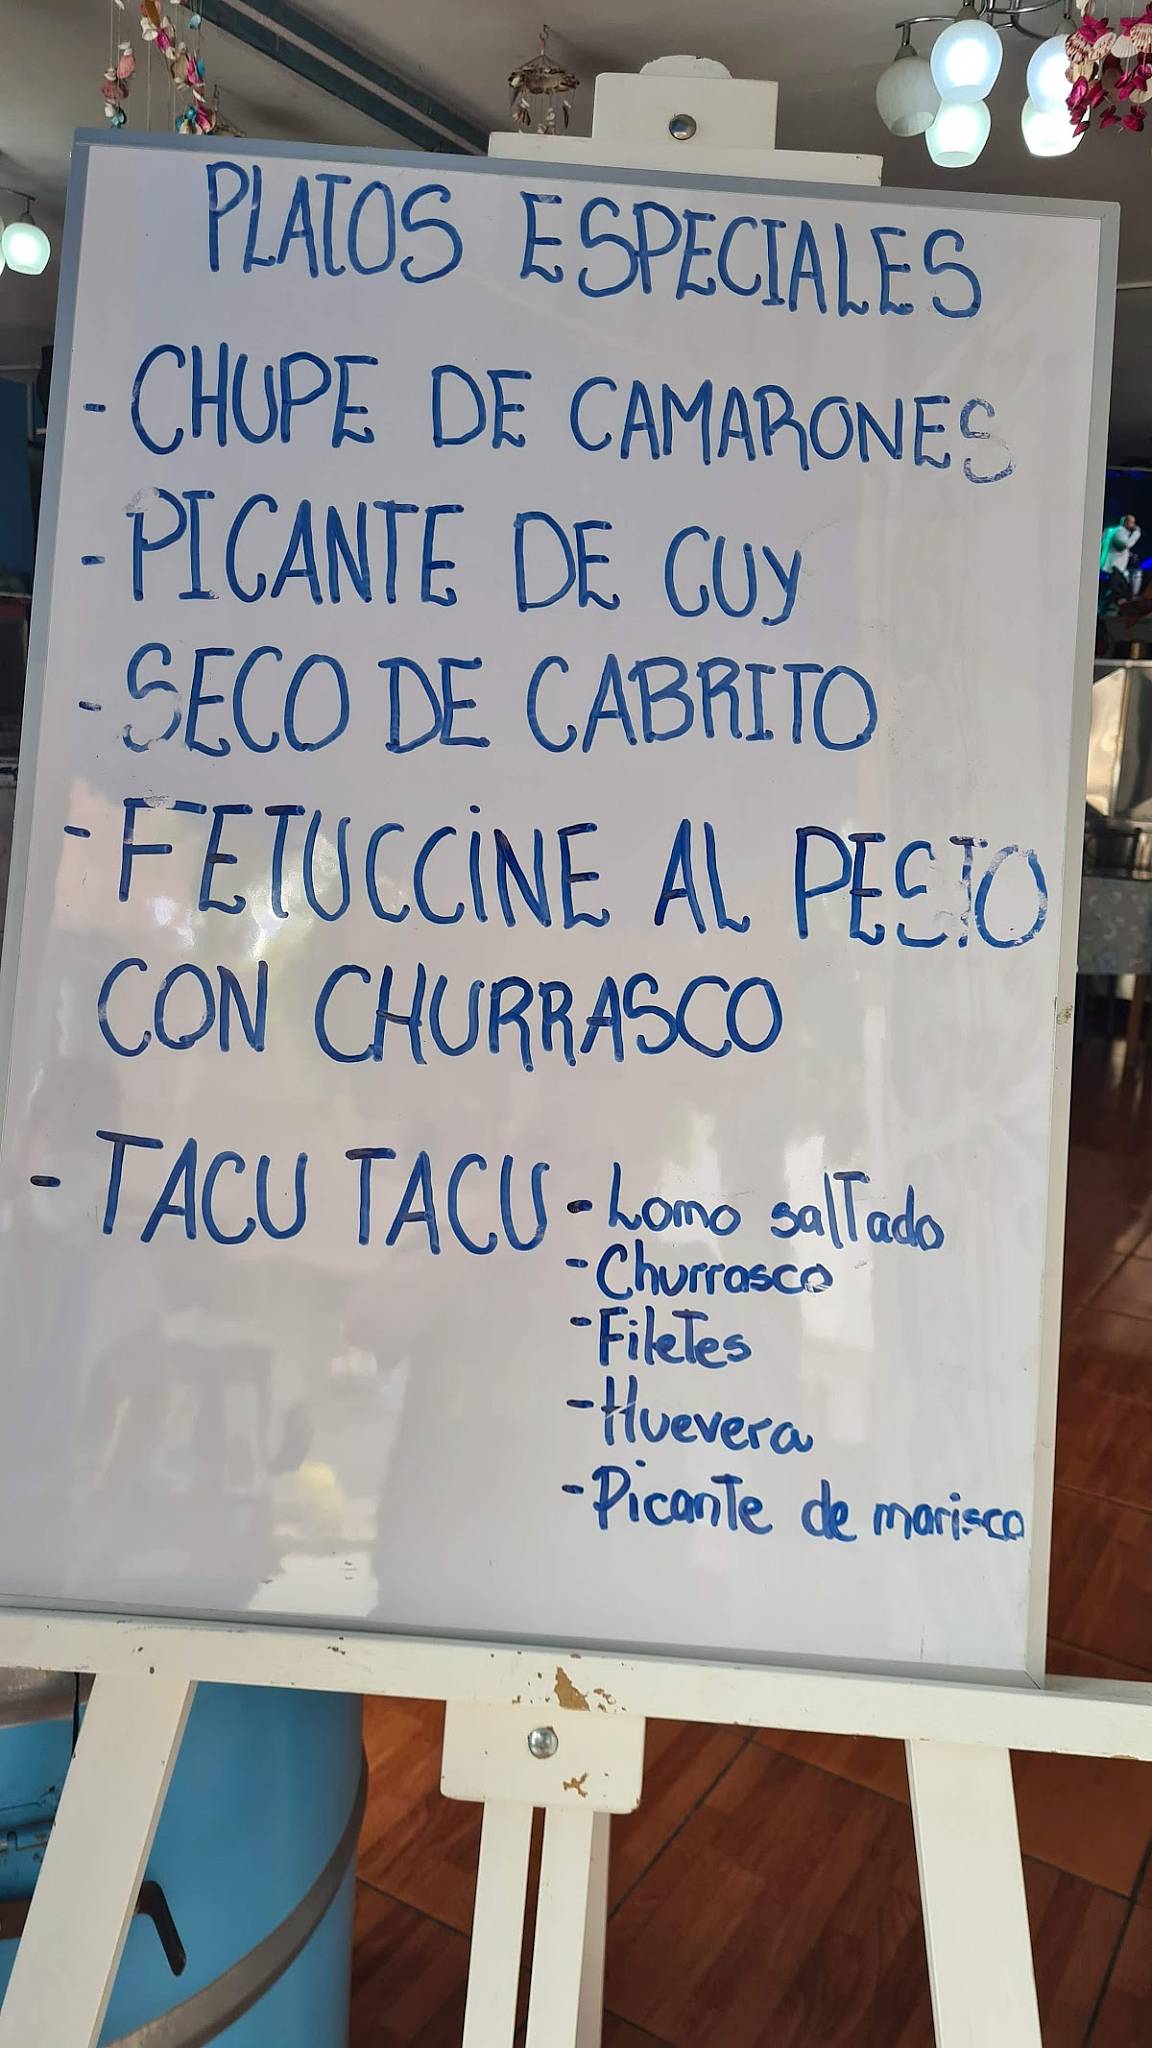 PLATOS ESPECIALES
- CHUPE DE CAMARONES
- PICANTE DE CUY
- SECO DE CABRITO
- FETUCCINE AL PESTO
CON CHURRASCO
- TACU TACU - Lomo salTado
- Churrasco
- FileTes
- Huevera
- PicanTe de marisco